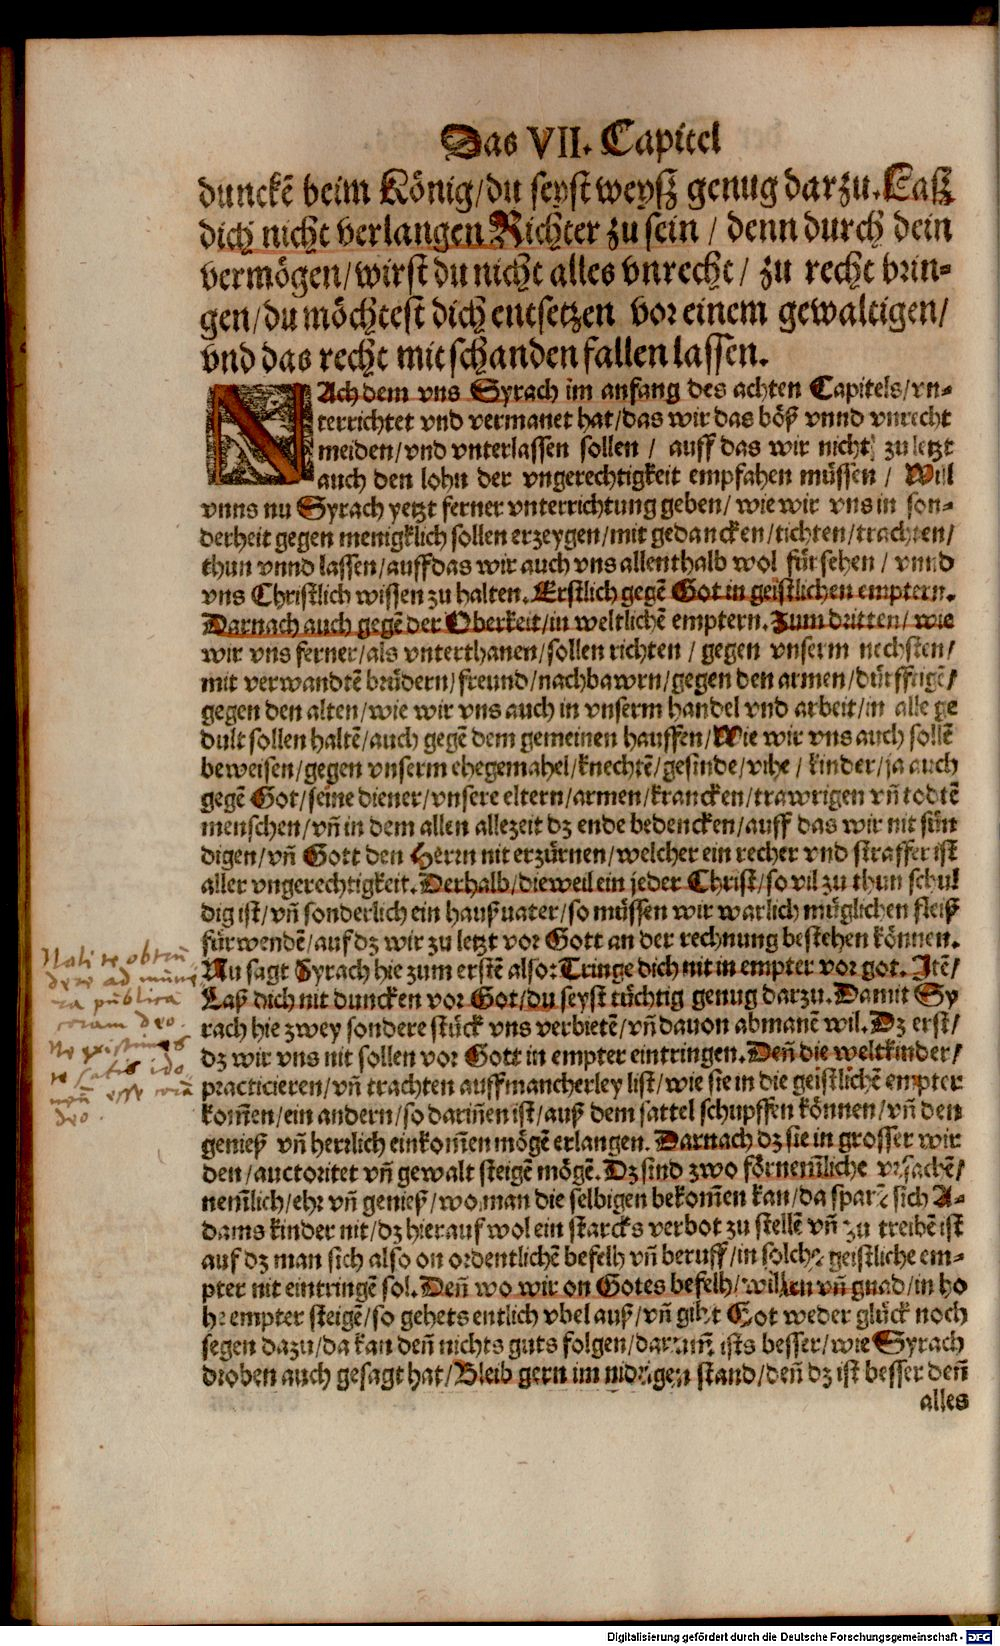 Das VII. Capitel
dunckē beim König/du seyst weyß genug darzu. Laß
dich nicht verlangen Richter zu sein / denn durch dein
vermögen/wirst du nicht alles vnrecht/ zu recht brin-
gen/du möchtest dich entsetzen vor einem gewaltigen/
vnd das recht mit schanden fallen lassen.
NAch dem vns Syrach im anfang des achten Capitels/vn-
terrichtet vnd vermanet hat/das wir das böß vnnd vnrecht
meiden/vnd vnterlassen sollen / auff das wir nicht zu letzt
auch den lohn der vngerechtigkeit empfahen müssen / Will
vnns nu Syrach yetzt ferner vnterrichtung geben/ wie wir vns in son-
derheit gegen menigklich sollen erzeygen/mit gedancken/tichten/trachten/
thun vnnd lassen/auff das wir auch vns allenthalb wol fürsehen / vnnd
vns Christlich wissen zu halten. Erstlich gegē Got in geistlichen emptern.
Darnach auch gegē der Oberkeit/in weltlichē emptern. Zum dritten/ wie
wir vns ferner/als vnterthanen/sollen richten / gegen vnserm nechsten/
mit verwandtē brüdern/freund/nachbawrn/gegen den armen/dürfftigē/
gegen den alten/wie wir vns auch in vnserm handel vnd arbeit/in alle ge
dult sollen haltē/auch gegē dem gemeinen hauffen/Wie wir vns auch sollē
beweisen/gegen vnserm ehegemahel/knechtē/gesinde/vihe / kinder/ja auch
gegē Got/seine diener/vnsere eltern/armen/krancken/trawrigen vñ todtē
menschen/vñ in dem allen allezeit dz ende bedencken/auff das wir nit sün
digen/vñ Gott den Herrn nit erzürnen/welcher ein recher vnd straffer ist
aller vngerechtigkeit. Derhalb/dieweil ein jeder Christ/so vil zu thun schul
dig ist/vñ sonderlich ein haußuater/so müssen wir warlich müglichen fleiß
fürwendē/auf dz wir zu letzt vor Gott an der rechnung bestehen können.
Nu sagt Syrach hie zum erstē also: Tringe dich nit in empter vor got. Itē/
Laß dich nit duncken vor Got/du seyst tüchtig genug darzu. Damit Sy
rach hie zwey sondere stück vns verbietē/vñ dauon abmanē wil. Dz erst/
dz wir vns nit sollen vor Gott in empter eintringen. Deñ die weltkinder/
practicieren/vñ trachten auff mancherley list/wie sie in die geistlichē empter
kom̄en/ein andern/so dariñen ist/auß dem sattel schupffen können/vñ den
genieß vñ herrlich einkom̄en mögē erlangen. Darnach dz sie in grosser wir
den/auctoritet vñ gewalt steigē mögē. Dz sind zwo förnem̄liche vrsachē/
nem̄lich/ehr vñ genieß/wo man die selbigen bekom̄en kan/da sparē sich A-
dams kinder nit/dz hierauf wol ein starcks verbot zu stellē vñ zu treibē ist
auf dz man sich also on ordentlichē befelh vñ beruff/in solche geistliche em-
pter nit eintringē sol. Deñ wo wir on Gotes befelh/willen vñ gnad/in ho
he empter steigē/so gehets entlich vbel auß/vñ gibt Got weder glück noch
segen dazu/da kan deñ nichts guts folgen/darum̄ ists besser/wie Syrach
droben auch gesagt hat/Bleib gern im nidrigen stand/deñ dz ist besser deñ
alles
Nali te obtru
dere ad mune
ra publica
coram deo.
Ne existimes
te satis ido
neū esse corā
deo.
Digitalisierung gefördert durch die Deutsche Forschungsgemeinschaft - DFG